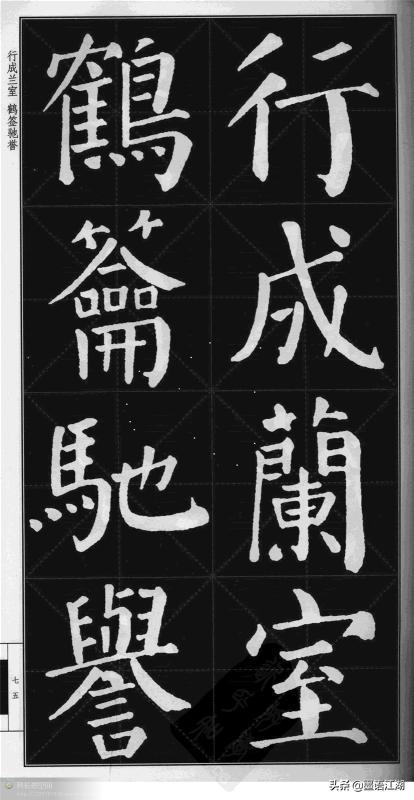 行成蘭室
鶴籥馳譽
行成兰室 鹤签驰誉
七五
头条@墨语江湖